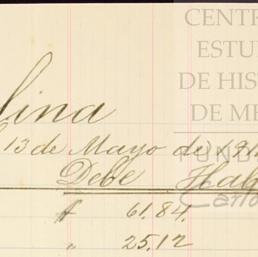 CENTR
ESTU
DE HIS
DE ME
FUND
Carlo
lina
13 de Mayo de 191
Debe Hab
$ 61.84
" 25.12